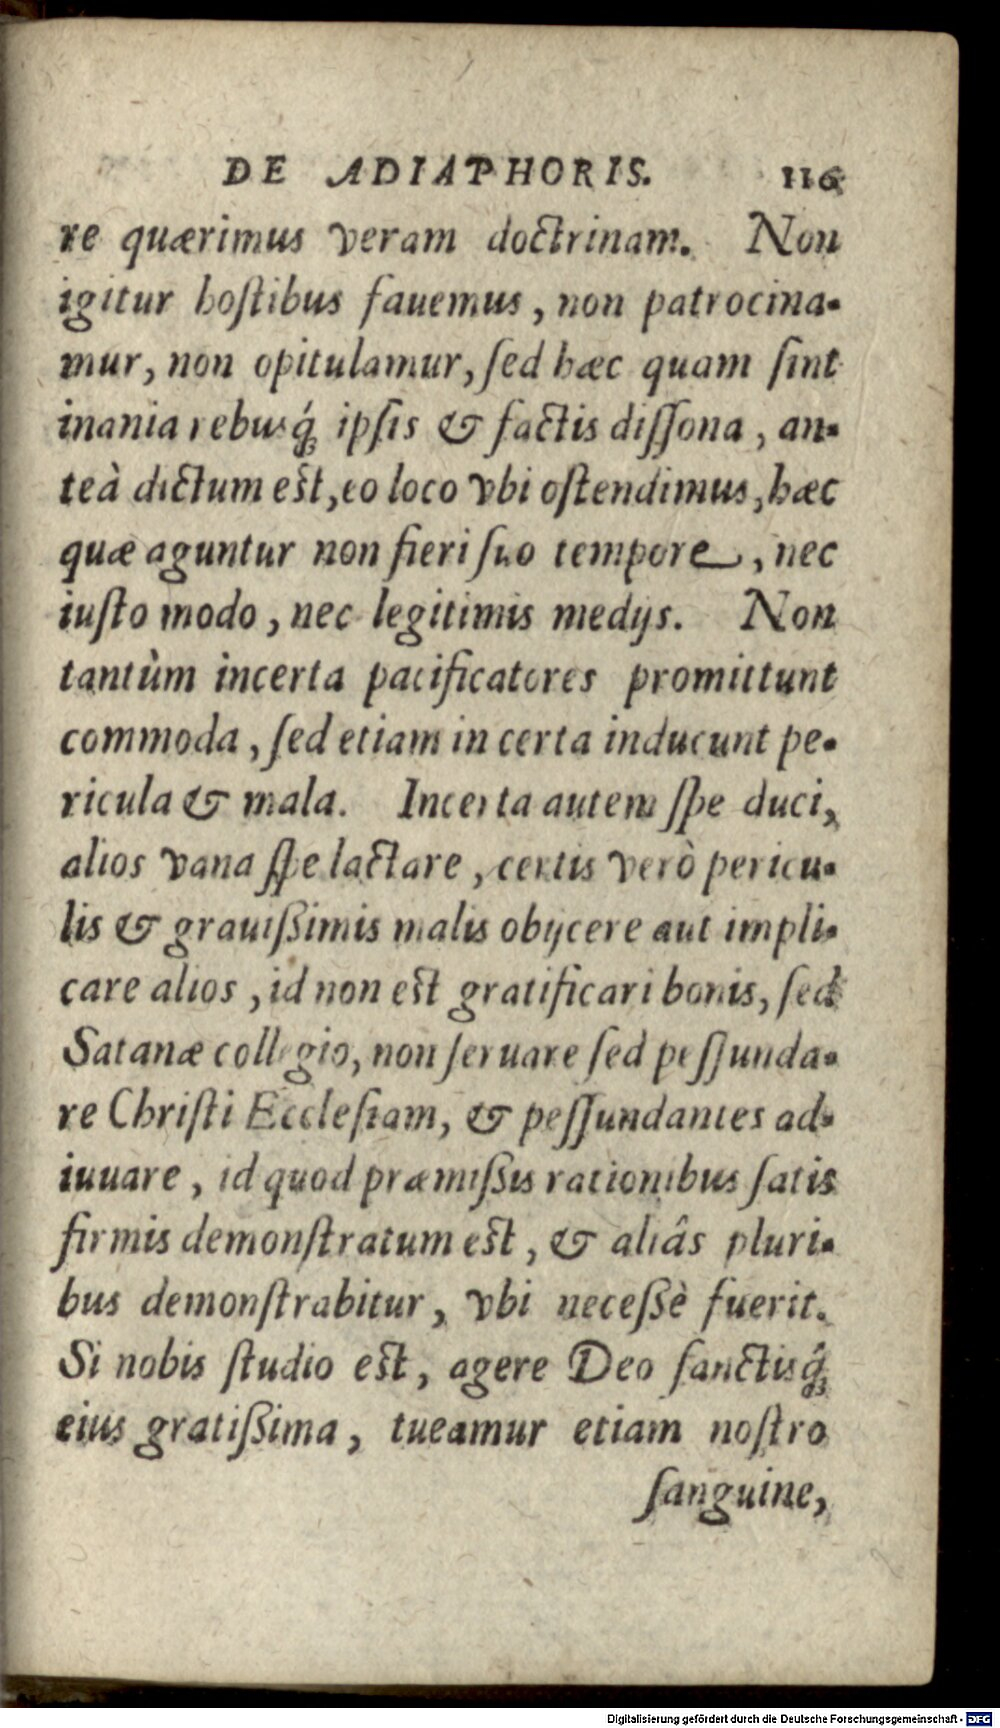 DE ADIAPHORIS. 116
re quærimus veram doctrinam. Non
igitur hoſtibus fauemus, non patrocina-
mur, non opitulamur, ſed hæc quam ſint
inania rebusq́; ipſis & factis diſſona, an-
teà dictum eſt, eo loco vbi oſtendimus, hæc
quæ aguntur non fieri ſuo tempore, nec
iuſto modo, nec legitimis medijs. Non
tantùm incerta pacificatores promittunt
commoda, ſed etiam in certa inducunt pe-
ricula & mala. Incerta autem ſpe duci,
alios vana ſpe lactare, certis verò pericu-
lis & grauißimis malis obijcere aut impli-
care alios, id non eſt gratificari bonis, ſed
Satanæ collegio, non ſeruare ſed peſſunda-
re Chriſti Eccleſiam, & peſſundantes ad-
iuuare, id quod præmißis rationibus ſatis
firmis demonſtratum eſt, & aliâs pluri-
bus demonſtrabitur, vbi neceßè fuerit.
Si nobis ſtudio eſt, agere Deo ſanctisq́;
eius gratißima, tueamur etiam noſtro
ſanguine,
Digitalisierung gefördert durch die Deutsche Forschungsgemeinschaft - DFG